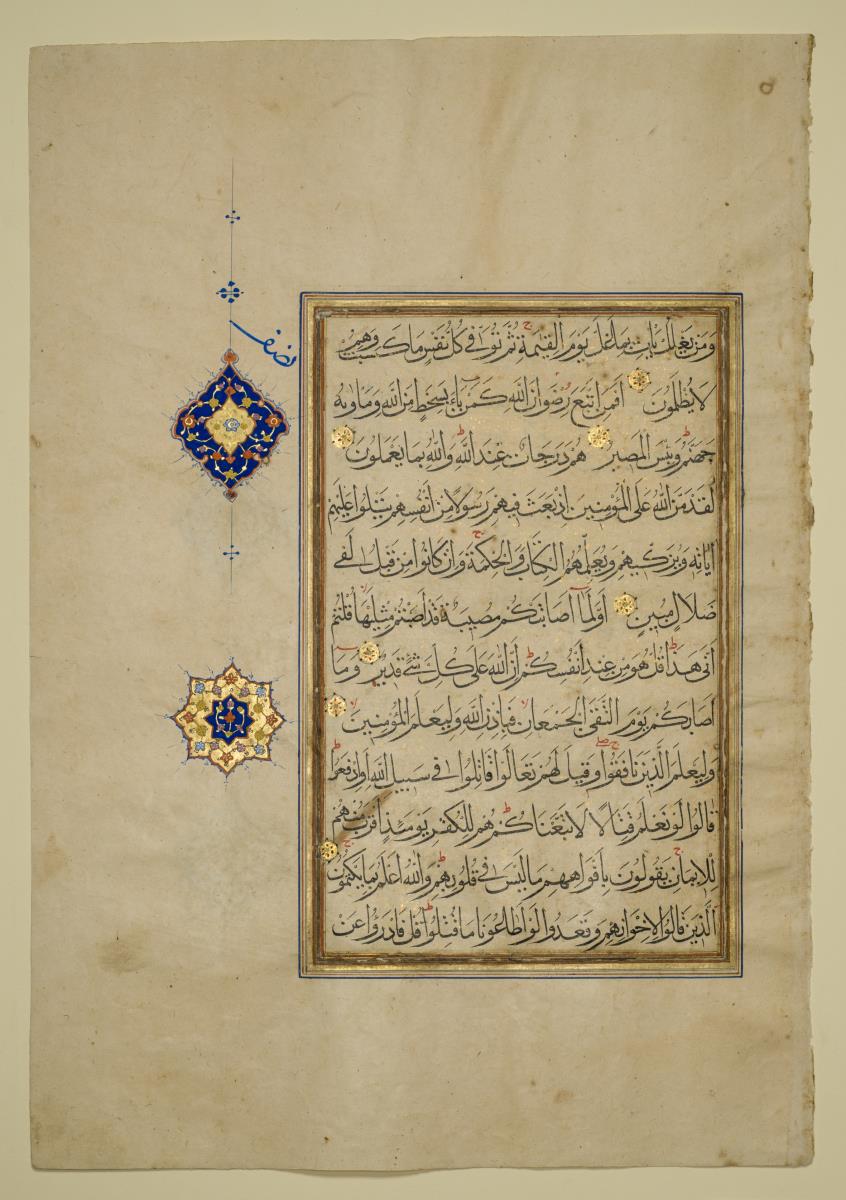 نصف
وَمَنْ يَغْلُلْ يَأْتِ بِمَا غَلَّ يَوْمَ الْقِيمَةِ ثُمَّ تُوَفّٰى كُلُّ نَفْسٍ مَا كَسَبَتْ وَهُمْ
لَا يُظْلَمُونَ أَفَمَنِ اتَّبَعَ رِضْوَانَ اللهِ كَمَنْ بَاءَ بِسَخَطٍ مِنَ اللهِ وَمَأْوٰيهُ
جَهَنَّمُ وَبِئْسَ الْمَصِيرُ هُمْ دَرَجَاتٌ عِنْدَ اللهِ وَاللهُ بِمَا يَعْمَلُونَ
لَقَدْ مَنَّ اللهُ عَلَى الْمُؤْمِنِينَ إِذْ بَعَثَ فِيهِمْ رَسُولًا مِنْ أَنْفُسِهِمْ يَتْلُوا عَلَيْهِمْ
اٰيَاتِهِ وَيُزَكِّيهِمْ وَيُعَلِّمُهُمُ الْكِتَابَ وَالْحِكْمَةَ وَإِنْ كَانُوا مِنْ قَبْلُ لَفِي
ضَلَالٍ مُبِينٍ أَوَلَمَّا أَصَابَتْكُمْ مُصِيبَةٌ قَدْ أَصَبْتُمْ مِثْلَيْهَا قُلْتُمْ
أَنّٰى هٰذَا قُلْ هُوَ مِنْ عِنْدِ أَنْفُسِكُمْ إِنَّ اللهَ عَلٰى كُلِّ شَيْءٍ قَدِيرٌ وَمَا
أَصَابَكُمْ يَوْمَ الْتَقَى الْجَمْعَانِ فَبِإِذْنِ اللهِ وَلِيَعْلَمَ الْمُؤْمِنِينَ
وَلِيَعْلَمَ الَّذِينَ نَافَقُوا وَقِيلَ لَهُمْ تَعَالَوْا قَاتِلُوا فِي سَبِيلِ اللهِ أَوِ ادْفَعُوا
قَالُوا لَوْ نَعْلَمُ قِتَالًا لَاتَّبَعْنَاكُمْ هُمْ لِلْكُفْرِ يَوْمَئِذٍ أَقْرَبُ مِنْهُمْ
لِلْإِيمَانِ يَقُولُونَ بِأَفْوَاهِهِمْ مَا لَيْسَ فِي قُلُوبِهِمْ وَاللهُ أَعْلَمُ بِمَا يَكْتُمُونَ
الَّذِينَ قَالُوا لِإِخْوَانِهِمْ وَقَعَدُوا لَوْ أَطَاعُونَا مَا قُتِلُوا قُلْ فَادْرَؤُا عَنْ